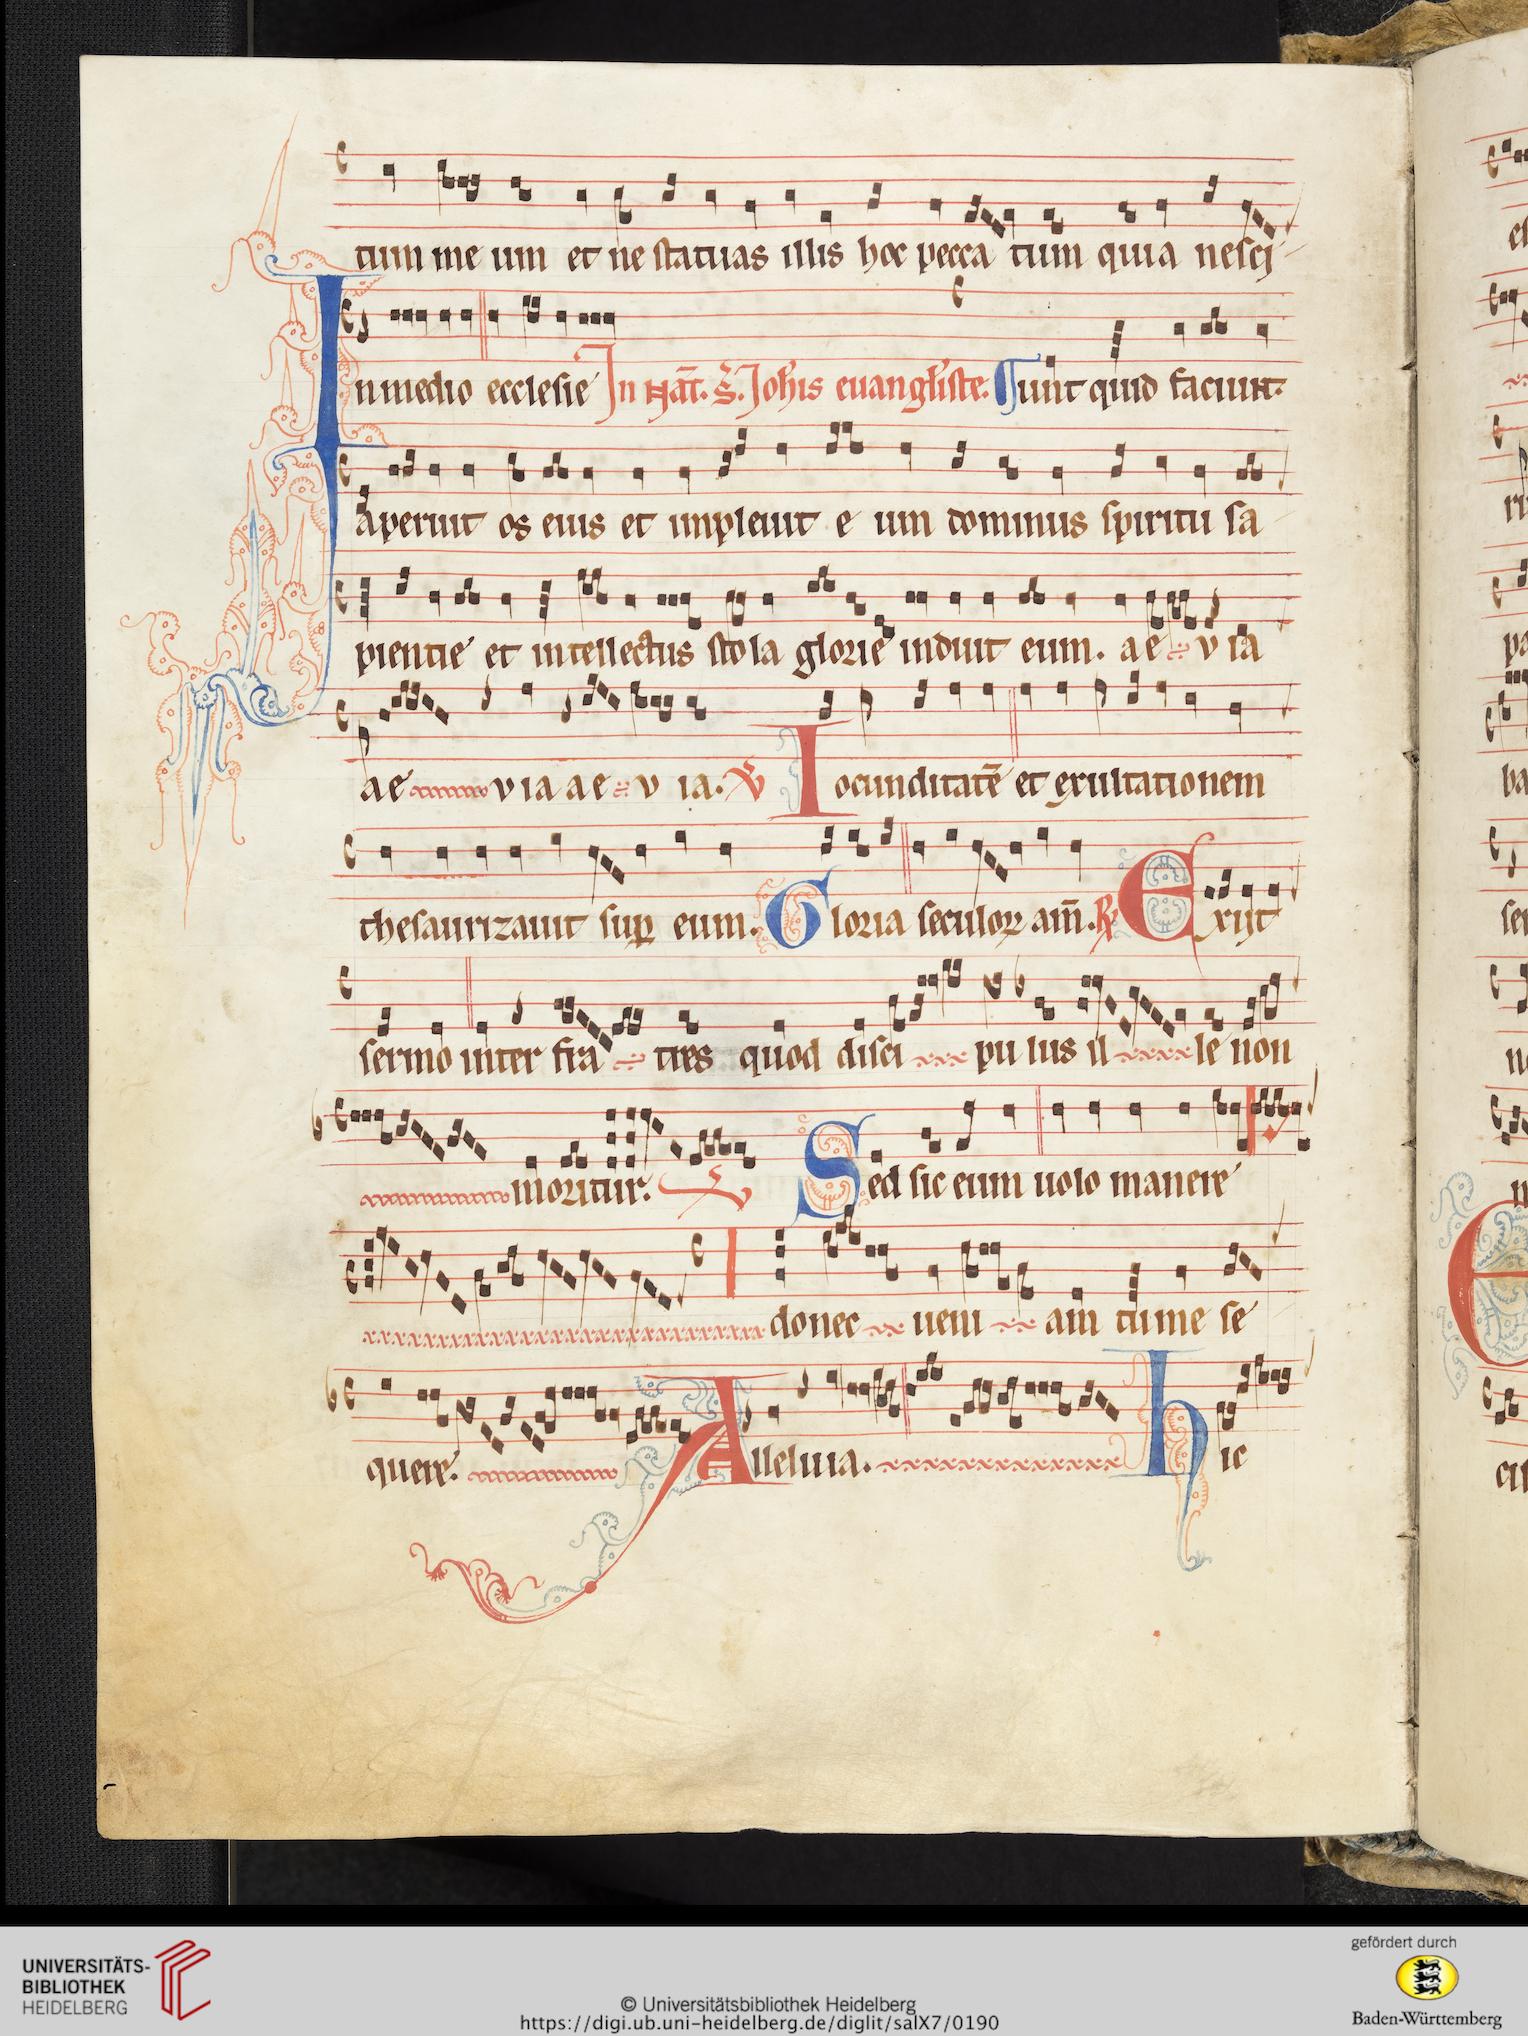 tum me um et ne statuas illis hoc pecca tum quia nesci
In medio ecclesie In Nat. S. Joh'is euang'liste. Sunt quid faciunt.
aperuit os eius et impleuit e um dominus spiritu sa
pientie et intellectus stola glorie induit eum. ae v ia
ae v ia ae v ia. V Iocunditatē et exultationem
thesaurizauit sup eum. Gloria seculoꝝ am̄. R Exijt
sermo inter fra tres quod disci pu lus il le non
moritur. Sed sic eum uolo manere
donec ueni am tu me se
quere. Alleluia. hic
UNIVERSITÄTS-
BIBLIOTHEK
HEIDELBERG
© Universitätsbibliothek Heidelberg
https://digi.ub.uni-heidelberg.de/diglit/salX7/0190
gefördert durch
Baden-Württemberg